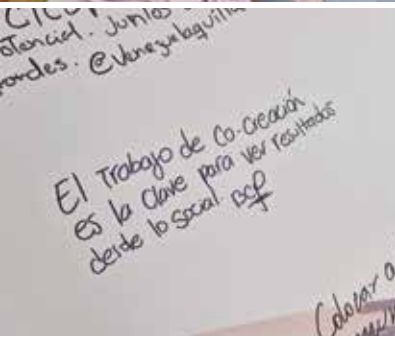 otencial. Juntos
andes. @Venezuelaguilla
El Trabajo de Co-creación
es la Clave para ver resultados
desde lo social BCP
Colocar a